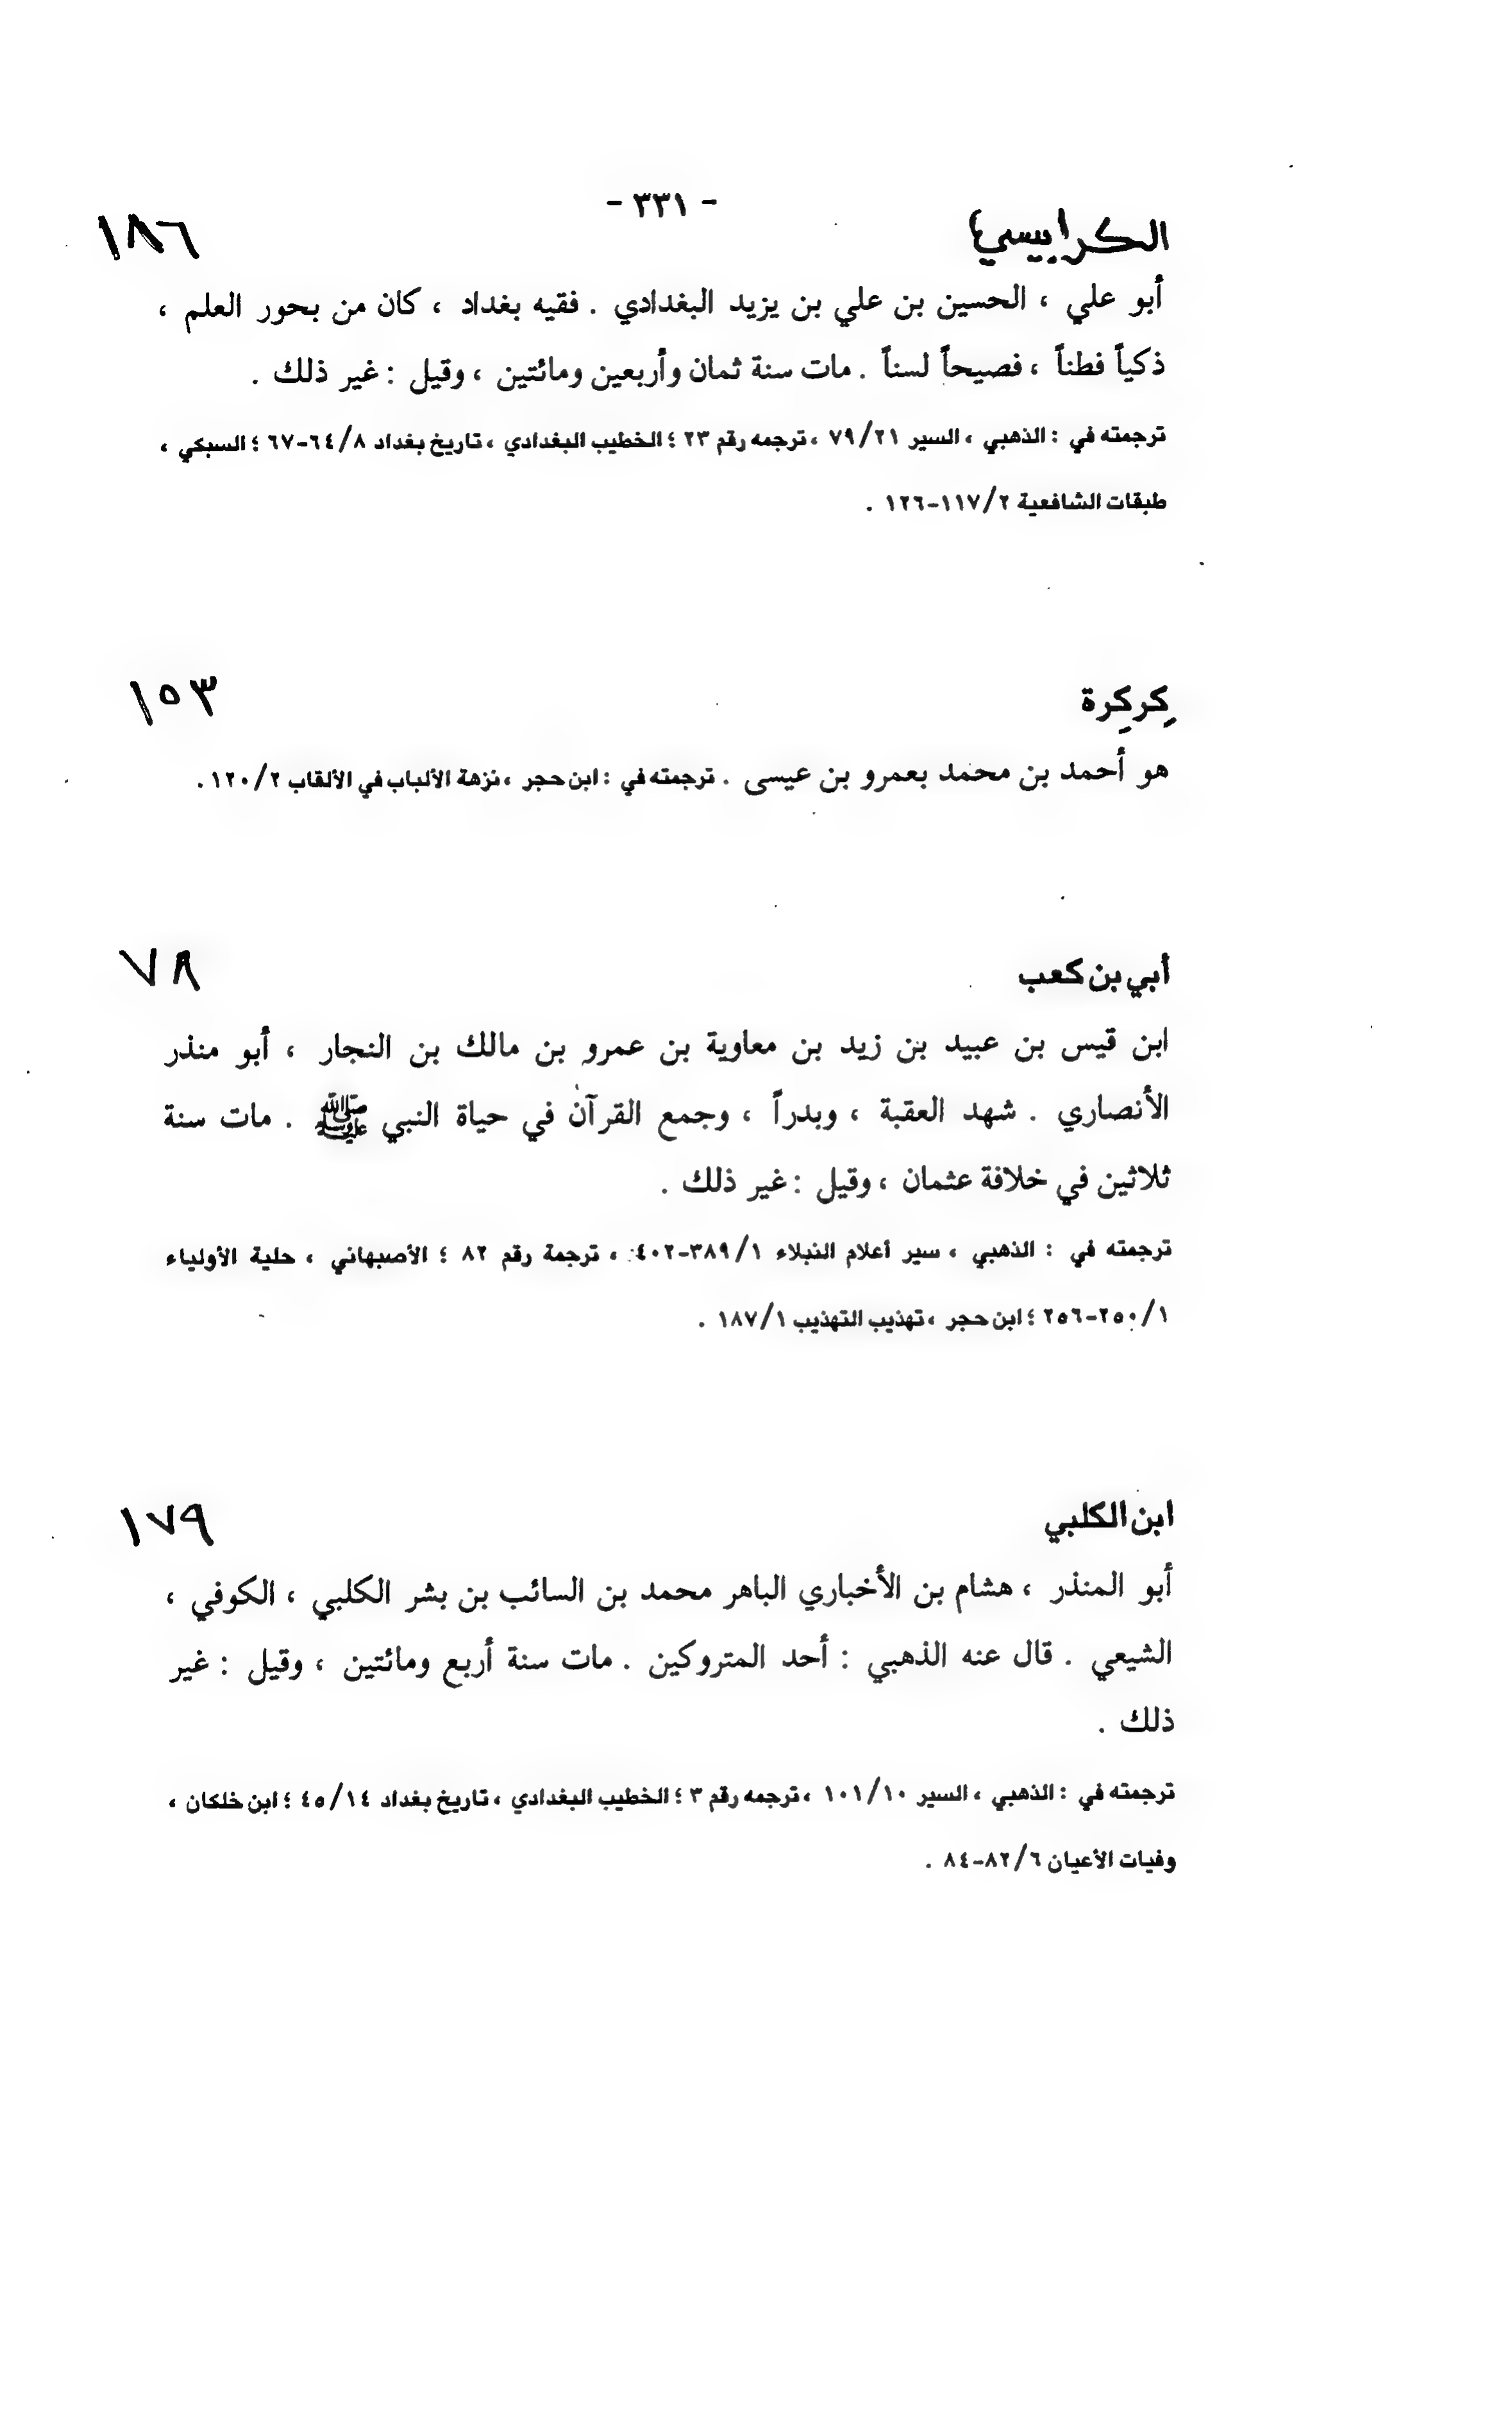 - ٣٣١ -
الكرابيسي ١٨٦
أبو علي ، الحسين بن علي بن يزيد البغدادي . فقيه بغداد ، كان من بحور العلم ،
ذكياً فطناً ، فصيحاً لسناً . مات سنة ثمان وأربعين ومائتين ، وقيل : غير ذلك .
ترجمته في : الذهبي ، السير ٧٩/٢١ ، ترجمه رقم ٢٣ ؛ الخطيب البغدادي ، تاريخ بغداد ٦٤/٨-٦٧ ؛ السبكي ،
طبقات الشافعية ١١٧/٢-١٢٦ .
كِركِرة ١٥٣
هو أحمد بن محمد بعمرو بن عيسى . ترجمته في : ابن حجر ، نزهة الألباب في الألقاب ١٢٠/٢ .
أبي بن كعب ٧٨
ابن قيس بن عبيد بن زيد بن معاوية بن عمرو بن مالك بن النجار ، أبو منذر
الأنصاري . شهد العقبة ، وبدراً ، وجمع القرآن في حياة النبي ﷺ . مات سنة
ثلاثين في خلافة عثمان ، وقيل : غير ذلك .
ترجمته في : الذهبي ، سير أعلام النبلاء ٣٨٩/١-٤٠٢ ، ترجمة رقم ٨٢ ؛ الأصبهاني ، حلية الأولياء
٢٥٠/١-٢٥٦ ؛ ابن حجر ، تهذيب التهذيب ١٨٧/١ .
ابن الكلبي ١٧٩
أبو المنذر ، هشام بن الأخباري الباهر محمد بن السائب بن بشر الكلبي ، الكوفي ،
الشيعي . قال عنه الذهبي : أحد المتروكين . مات سنة أربع ومائتين ، وقيل : غير
ذلك .
ترجمته في : الذهبي ، السير ١٠١/١٠ ، ترجمه رقم ٣ ؛ الخطيب البغدادي ، تاريخ بغداد ٤٥/١٤ ؛ ابن خلكان ،
وفيات الأعيان ٨٢/٦-٨٤ .